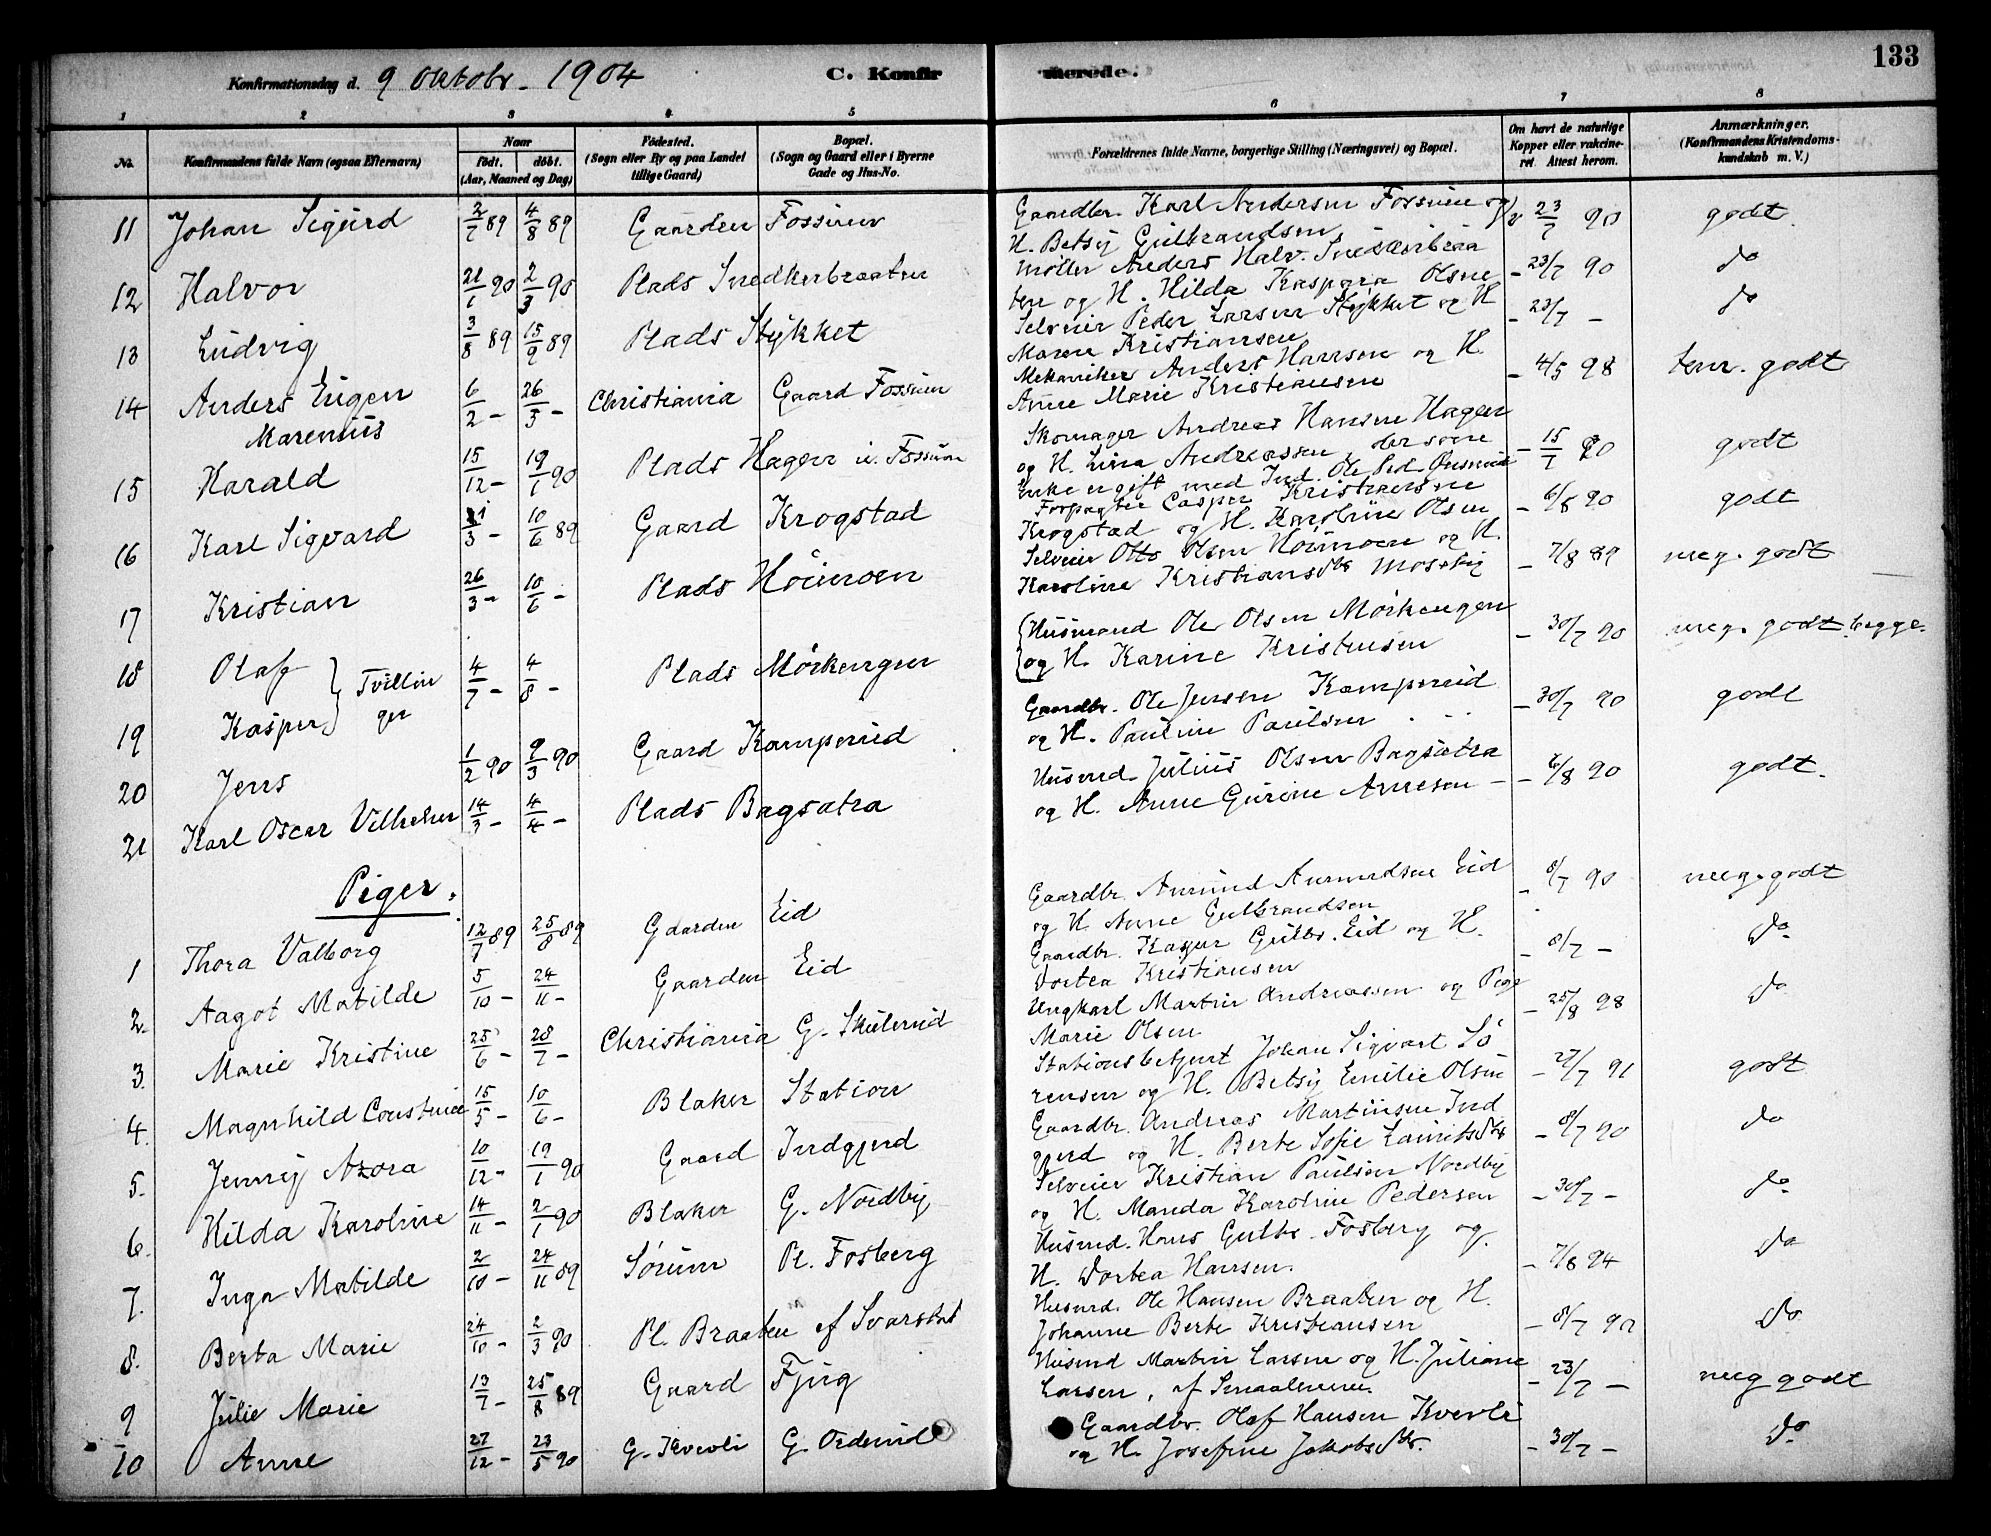 133
Konfirmationsdag d. 9 Oktobr. 1904 C. Konfirmerede.
1 2 3 4 5 6 7 8
No. Konfirmandens fulde Navn (ogsaa Efternavn) Naar født. døbt. (Aar, Maaned og Dag) Fødested. (Sogn eller By og paa Landet tillige Gaard) Bopæl. (Sogn og Gaard eller i Byerne Gade og Hus-No.) Forældrenes fulde Navne, borgerlige Stilling (Næringsvei) og Bopæl. Om havt de naturlige Kopper eller vakcineret. Attest herom. Anmærkninger. (Konfirmandens Kristendomskundskab m. V.)
11 Johan Sigurd 2/7 89 4/8 89 Gaarden Fossum Gaardbr. Karl Andersen Fossum og H. Betsy Gulbrandsen 23/7 90 godt
12 Halvor 21/1 90 2/3 90 Plads Snedkerbraaten Møller Anders Halv. Snedkerbraaten og H. Hilda Kaspara Olsen - 23/7 90 do
13 Ludvig 3/8 89 15/9 89 Plads Stykket Selveier Peder Larsen Stykket og H. Maren Kristiansen - 23/7 - do
14 Anders Eugen Marenius 6/2 - 26/5 - Christiania Gaard Fossum Mekaniker Anders Hansen og H. Anne Marie Kristiansen - 4/5 98 tem. godt
15 Harald 15/12 - 19/1 90 Plads Hagen u. Fossum Skomager Andreas Hansen Hagen og H. Lina Andreassen, der som Enke er gift med Ind. Ole Ped. - 15/7 90 godt
16 Karl Sigvard 21/3 - 10/6 89 Gaard Krogstad Forpagter Casper Kristiansen Krogstad og H. Karoline Olsen - 6/8 90 godt
17 Kristian 26/3 - 10/6 - Plads Höimoen Selveier Otto Olsen Höimoen og H. Karoline Kristiansdtr Mossby - 7/8 89 meg. godt
18 Olaf } Tvillinger 4/7 - 4/8 - Plads Mörkengen { Husmand Ole Olsen Mörkengen og H. Karine Kristensen - 30/7 90 meg. godt begge.
19 Kasper
20 Jens 1/2 90 9/3 90 Gaard Kamperud Gaardbr. Ole Jensen Kamperud og H. Pauline Paulsen - 30/7 90 godt
21 Karl Oscar Vilhelm 14/3 - 4/4 - Plads Bagsætra Husmd. Julius Olsen Bagsætra og H. Anne Gurine Arnesen - 6/8 90 godt.
Piger.
1 Thora Valborg 12/7 89 25/8 89 Gaarden Eid Gaardbr. Amund Amundsen Eid og H. Anne Gulbrandsen - 8/7 90 meg. godt
2. Aagot Matilde 5/10 - 24/11 - Gaarden Eid Gaardbr. Kasper Gulbr. Eid og H. Dortea Kristiansen - 8/7 - Do
3. Marie Kristine 25/6 - 28/7 - Christiania G. Skulerud Ungkarl Martin Andreassen og Pige Marie Olsen - 25/8 98 Do
4. Magnhild Constance 15/5 - 10/6 - Blaker Station Stationsbetjent Johan Sigvart Sörensen og H. Betsy Emilie Olsen - 27/7 91 godt
5. Jenny Azora 10/12 - 19/1 90 Gaard Indgjerd Gaardbr. Andreas Martinsen Indgjerd og H. Berte Sofie Lauritsdtr - 8/7 90 do
6. Hilda Karoline 14/11 - 2/1 90 Blaker G. Nordby Selveier Kristian Paulsen Nordby og H. Manda Karoline Pedersen - 30/7 - do
7. Inga Matilde 2/10 - 24/11 89 Sörum Pl. Fosberg Husmd. Hans Gulbr. Fosberg og H. Dortea Hansen. - 7/8 94 Do
8. Berta Marie 24/10 - 2/3 90 Pl. Braaten af Svarstad Husmd. Ole Hansen Braaten og H. Johanne Berte Kristiansen - 8/7 90 Do
9 Julie Marie 13/7 - 25/8 89 Gaard Fjug Husmd Martin Larsen og H. Juliane Larsen, af Smaalenene - 23/7 - meg godt
10 Anne 27/12 - 23/5 90 G. Kvevli G. Ordenud Gaardbr. Olaf Hansen Kvevli og H. Josefine Jakobsdtr. - 30/7 - Do